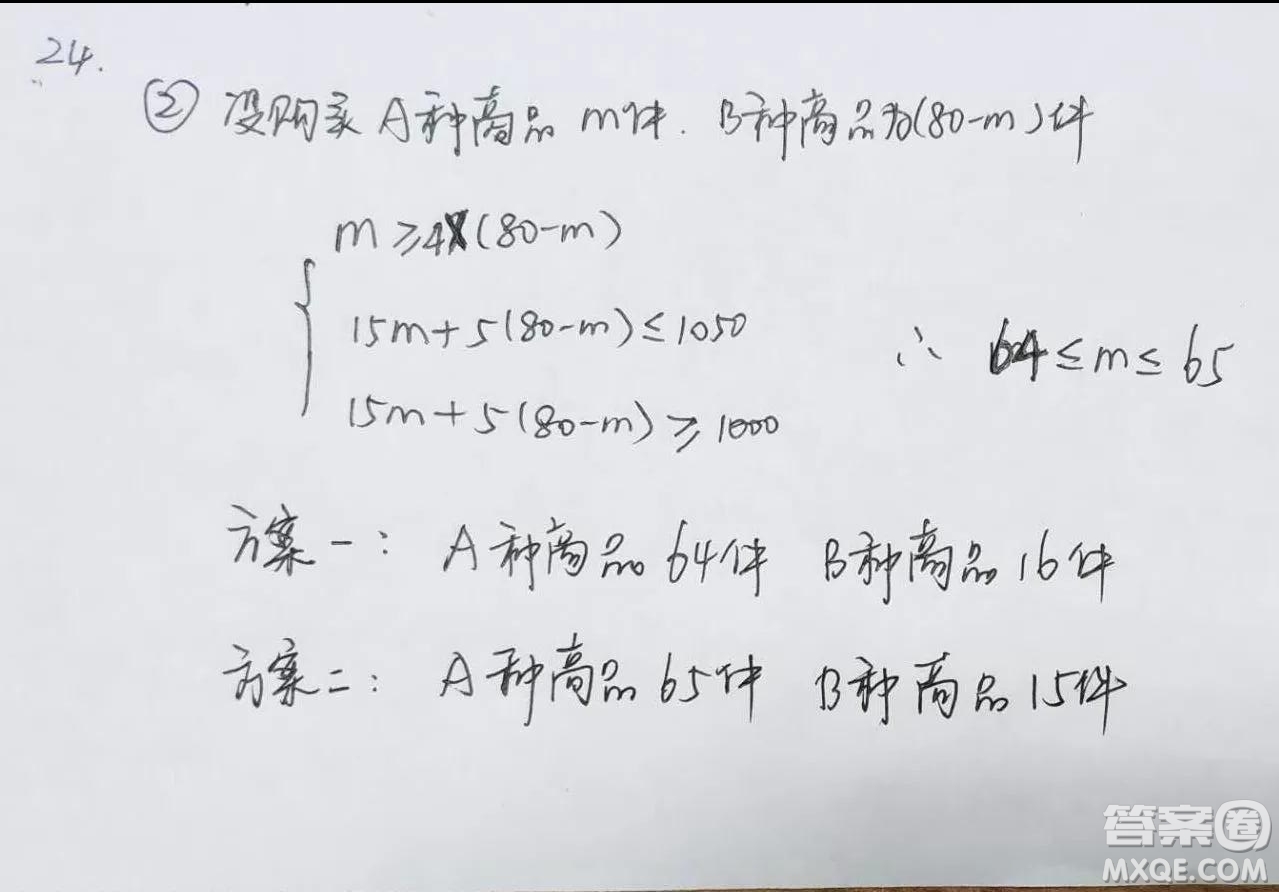 24.
② 设购买 A种商品 m件. B种商品为(80-m)件
m≥4×(80-m)
15m+5(80-m)≤1050
∴ 64≤m≤65
15m+5(80-m)≥1000
方案一: A种商品64件 B种商品16件
方案二: A种商品65件 B种商品15件
答案圈
MXQE.COM